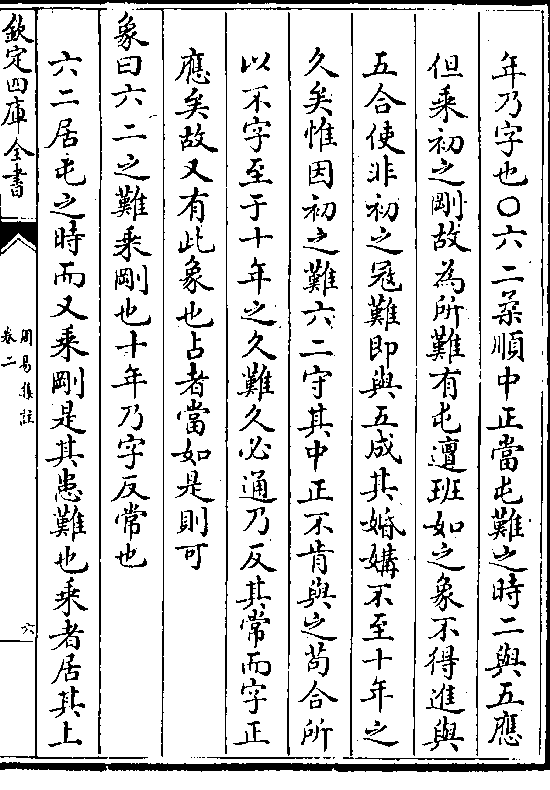 年乃字也○六二柔順中正當屯難之時二與五應
但乘初之剛故為所難有屯邅班如之象不得進與
五合使非初之冦難即與五成其婚媾不至十年之
久矣惟因初之難六二守其中正不肯與之苟合所
以不字至于十年之久難久必通乃反其常而字正
應矣故又有此象也占者當如是則可
象曰六二之難乘剛也十年乃字反常也
六二居屯之時而又乘剛是其患難也乘者居其上
欽定四庫全書
周易集註
卷二
六